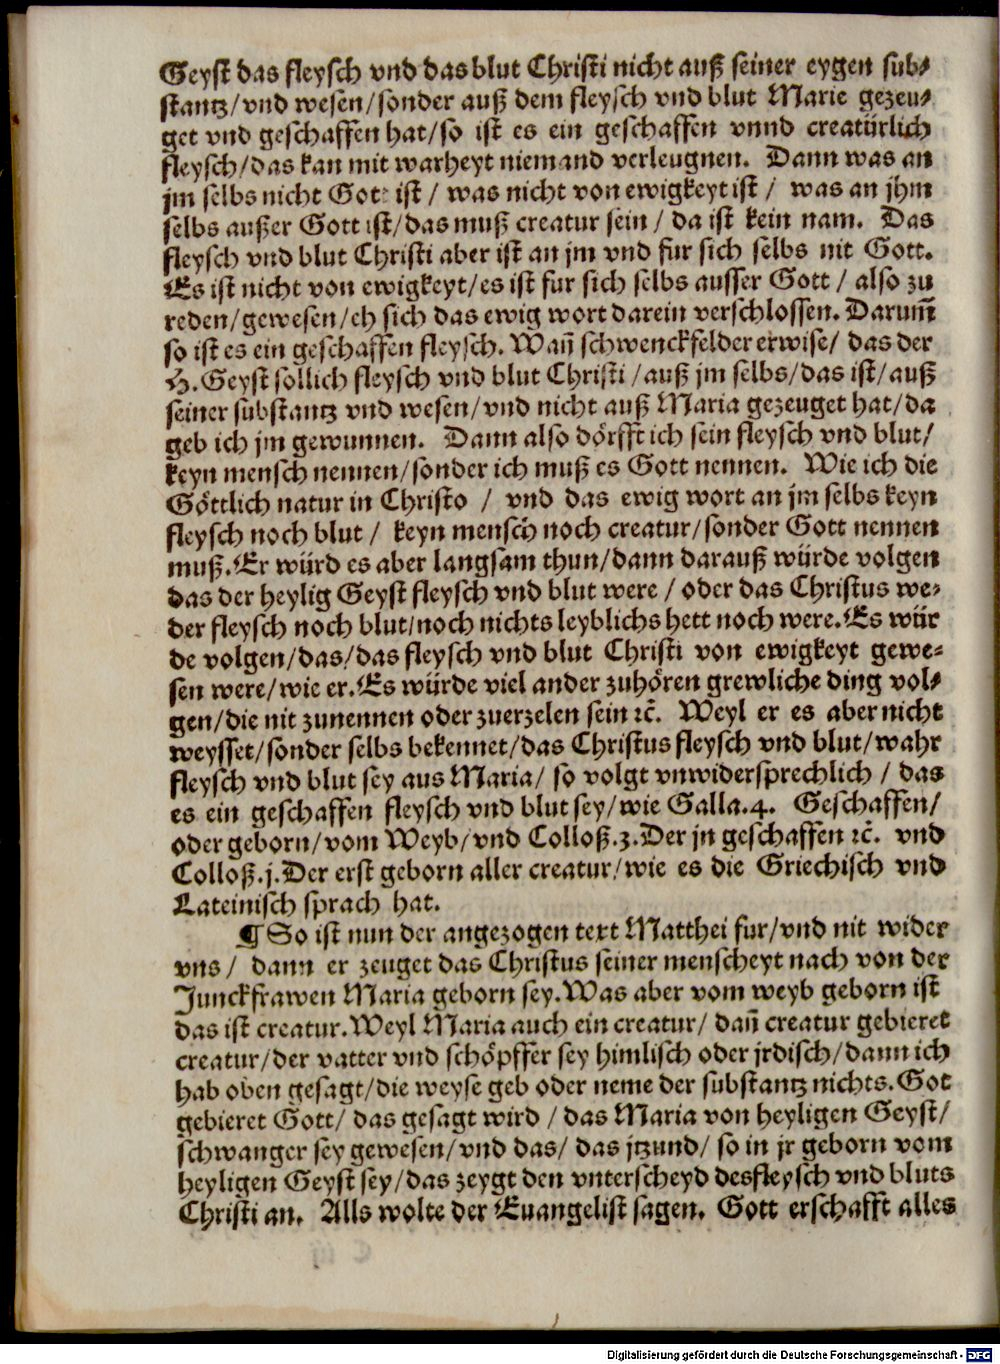 Geyst das fleysch vnd das blut Christi nicht auß seiner eygen sub⸗
stantz/vnd wesen/sonder auß dem fleysch vnd blut Marie gezeu⸗
get vnd geschaffen hat/so ist es ein geschaffen vnnd creatürlich
fleysch/das kan mit warheyt niemand verleugnen. Dann was an
jm selbs nicht Got ist / was nicht von ewigkeyt ist / was an jhm
selbs außer Gott ist/das muß creatur sein / da ist kein nam. Das
fleysch vnd blut Christi aber ist an jm vnd fur sich selbs nit Gott.
Es ist nicht von ewigkeyt/es ist fur sich selbs ausser Gott / also zu
reden/gewesen/eh sich das ewig wort darein verschlossen. Darum̃
so ist es ein geschaffen fleysch. Wañ schwenckfelder erwise/ das der
H. Geyst sollich fleysch vnd blut Christi /auß jm selbs/das ist/auß
seiner substantz vnd wesen/vnd nicht auß Maria gezeuget hat/da
geb ich jm gewunnen. Dann also dörfft ich sein fleysch vnd blut/
keyn mensch nennen/sonder ich muß es Gott nennen. Wie ich die
Göttlich natur in Christo / vnd das ewig wort an jm selbs keyn
fleysch noch blut / keyn mensch noch creatur/sonder Gott nennen
muß. Er würd es aber langsam thun/dann darauß würde volgen
das der heylig Geyst fleysch vnd blut were / oder das Christus we⸗
der fleysch noch blut/noch nichts leyblichs hett noch were. Es wür
de volgen/das/das fleysch vnd blut Christi von ewigkeyt gewe⸗
sen were/wie er. Es würde viel ander zuhören grewliche ding vol⸗
gen/die nit zunennen oder zuerzelen sein ꝛc̃. Weyl er es aber nicht
weysset/sonder selbs bekennet/das Christus fleysch vnd blut/wahr
fleysch vnd blut sey aus Maria/ so volgt vnwidersprechlich / das
es ein geschaffen fleysch vnd blut sey/wie Galla.4. Geschaffen/
oder geborn/vom Weyb/vnd Colloß.3. Der jn geschaffen ꝛc̃. vnd
Colloß.j. Der erst geborn aller creatur/wie es die Griechisch vnd
Lateinisch sprach hat.
¶ So ist nun der angezogen text Matthei fur/vnd nit wider
vns / dann er zeuget das Christus seiner menscheyt nach von der
Junckfrawen Maria geborn sey. Was aber vom weyb geborn ist
das ist creatur. Weyl Maria auch ein creatur/ dañ creatur gebieret
creatur/der vatter vnd schöpffer sey himlisch oder jrdisch/dann ich
hab oben gesagt/die weyse geb oder neme der substantz nichts. Got
gebieret Gott/ das gesagt wird / das Maria von heyligen Geyst/
schwanger sey gewesen/vnd das/ das jtzund/ so in jr geborn vom
heyligen Geyst sey/das zeygt den vnterscheyd des fleysch vnd bluts
Christi an. Alls wolte der Euangelist sagen. Gott erschafft alles
Digitalisierung gefördert durch die Deutsche Forschungsgemeinschaft - DFG